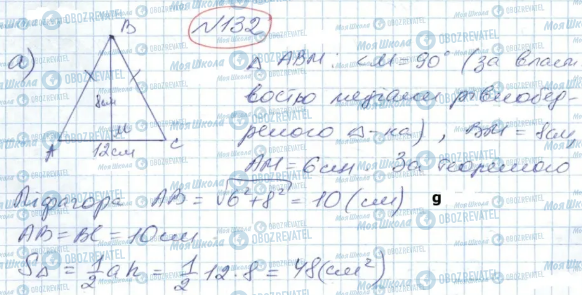 №132
а)
B
8см
M
A
C
12см
△ ABM: ∠M=90° (за власти-
востю медіани рівнобед-
реного △-ка), BM = 8см,
AM = 6см. За теоремою
Піфагора AB = √6²+8² = 10 (см)
g
AB = BC = 10см
S△ = 1/2 ah = 1/2 12·8 = 48 (см²)